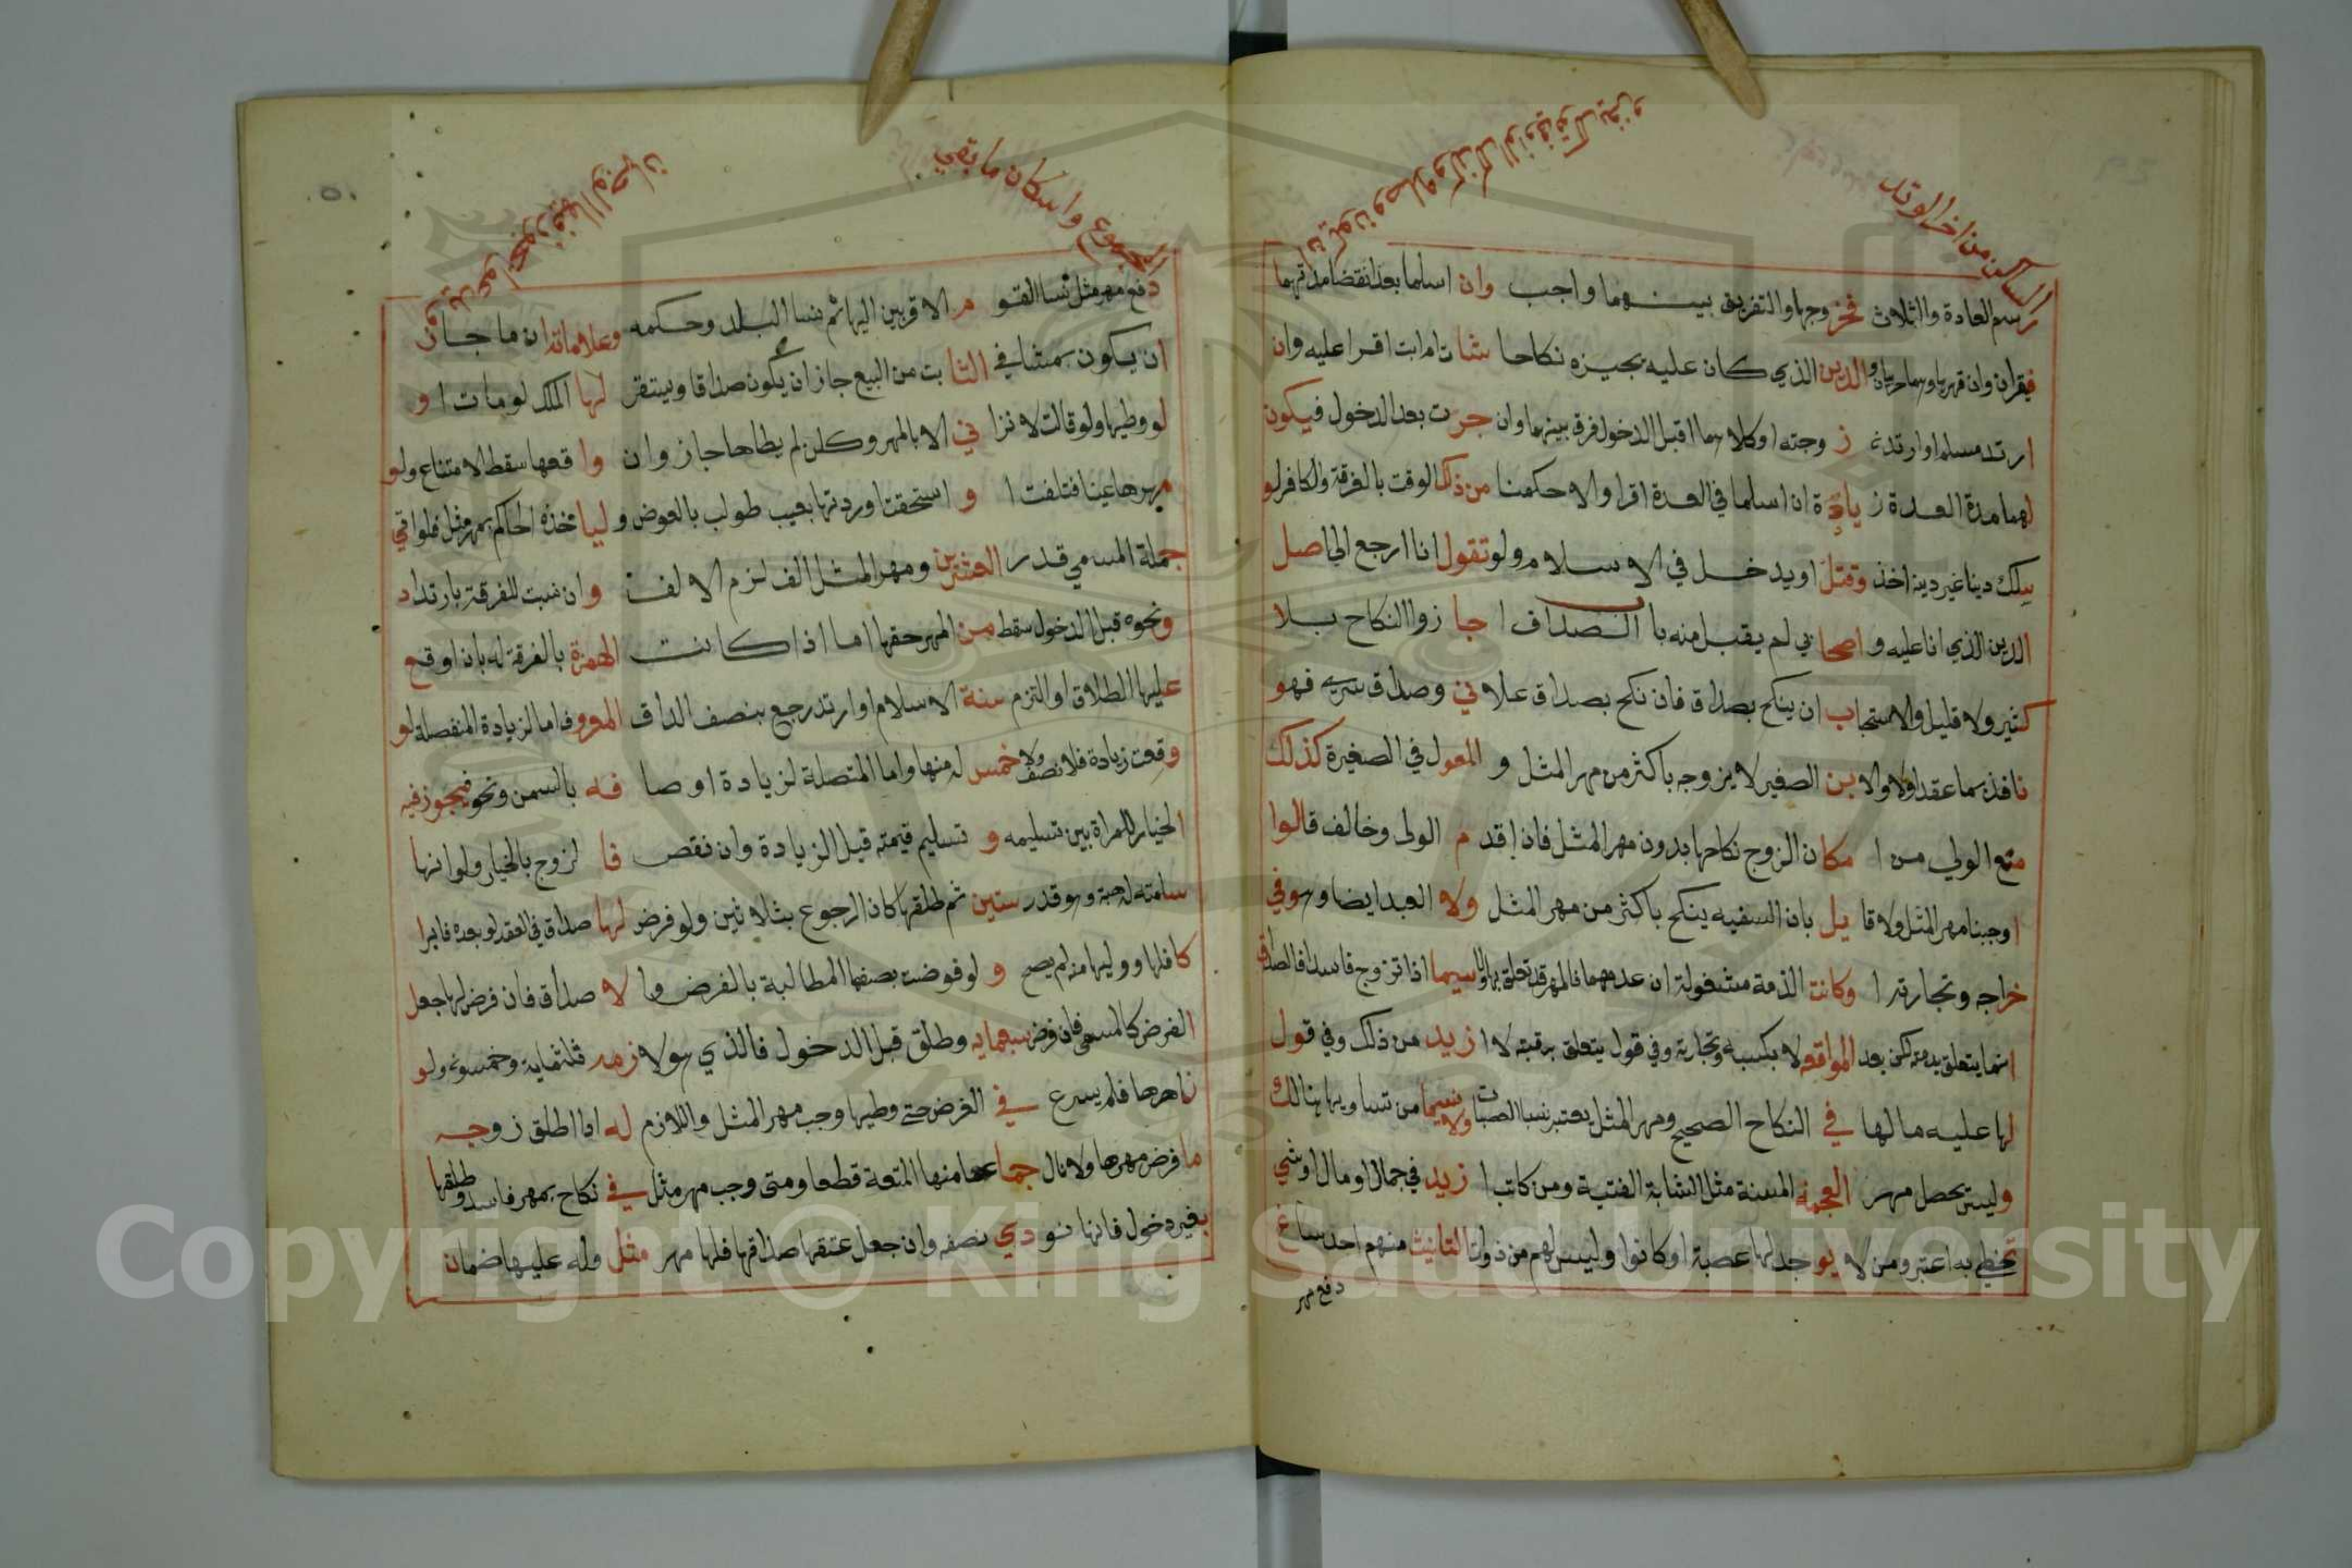 الساكن من اخر الوتد
ان يكون وصله وكذلك الذي في قولك يغزو
رسم العادة والثلاث فخروجها والتفريق بينهما واجب وان اسلما بعد انقضا مدتهما
فيقران وان قهر بها وهما حربيان والدين الذي كان عليه يجيزه نكاحا شات ام ابت اقرا عليه وان
ارتد مسلم او ارتدت زوجته او كلاهما قبل الدخول فرق بينهما وان جرت بعد الدخول فيكون
لهما مدة العدة زيادة ان اسلما في العدة اقرا والا حكمنا من ذلك الوقت بالفرقة والكافر لو
يسلك دينا غير دينه اخذ وقتل او يدخل في الاسلام ولو تقول انا ارجع الى اصل
الدين الذي انا عليه واصحابي لم يقبل منه باب الصداق اجازوا النكاح بلا
كثير ولا قليل والاستحباب ان ينكح بصداق فان نكح بصداق علاني وصداق سري فهو
نافذ بما عقد اولا والابن الصغير لا يزوجه باكثر من مهر المثل والمعول في الصغيرة كذلك
منع الولي من امكان الزوج نكاحها بدون مهر المثل فان اقدم الولي وخالف قالوا
اوجبنا مهر المثل ولا قايل بان السفيه ينكح باكثر من مهر المثل ولا العبد ايضا وهو في
خراجه وتجارته ا وكانت الذمة مشغولة ان عدمهما فالمهر قد تعلق بها ولا سيما اذا تزوج فاسدا فالصداق
انما يتعلق بذمته لكن بعد المواقعة لا بكسبه وتجارته وفي قول يتعلق برقبته لا ازيد من ذلك وفي قول
لها عليه مالها في النكاح الصحيح ومهر المثل يعتبر بنسا العصبات ولا سيما من تساويها هنالك
وليس يحصل مهر العجمة المسنة مثل الشابة الفتية ومن كانت ازيد في جمال او مال او شي
تحظى به اعتبر ومن لا يوجد لها عصبة او كانوا وليس لهم من ذوات التانيث منهم احد ساغ
دفع مهر
المجموع واسكان ما بقي
يجوز فيها الوجهان
دفع مهر مثل نسا القوم الاقربين اليها ثم نسا البلد وحكمه وعلاماته ان ما جاز
ان يكون مثمنا في الثابت من البيع جاز ان يكون صداقا ويستقر لها الملك لو ماتا و
لو وطيها ولو قالت لا نزا في الا بالمهر وكان لم يطاها جاز وان واقعها سقط الامتناع ولو
مهرها عينا فتلفت او استحقت او ردتها بعيب طولب بالعوض وليا خذه الحاكم بمهر مثل فلو اتي
جملة المسمي قدر العشرين ومهر المثل الف لزم الالف وان نسبت للفرقة بارتداد
ونحوه قبل الدخول سقط من المهر حقها اما اذا كانت الهمزة بالفرقة له بان اوقع
عليها الطلاق او التزم سنة الاسلام او ارتد رجع بنصف الداق المعروف اما الزيادة المنفصلة لو
وقعت زيادة فلا نصف ولا خمس له منها واما المتصلة لزيادة اوصافه بالسمن ونحو فيجوز فيه
الخيار للمراة بين تسليمه و تسليم قيمته قبل الزيادة وان نقص فالزوج بالخيار ولو انها
سلمته له هبة وهو قدر ستين ثم طلقها كان الرجوع بثلاثين ولو فرض لها صداق في العقد لو بعده فابرا
كافلها ووليها منه لم يصح و لو فوضت بضعها المطالبة بالفرض ولا صداق فان فرض لها جعل
الفرض كالمسمى فان فرض سبعمايه وطلق قبل الدخول فالذي هو لازمه ثلثماية وخمسون ولو
ناهرها فلم يسرع في الفرض حتى وطيها وجب مهر المثل واللازم له اذا طلق زوجه
ما فرض مهرها ولا نال جماعها منها المتعة قطعا ومتى وجب مهر مثل في نكاح بمهر فاسد وطلقها
بغير دخول فانها نودي نصفه وان جعل عتقها صداقها فلها مهر مثل وله عليها ضمان